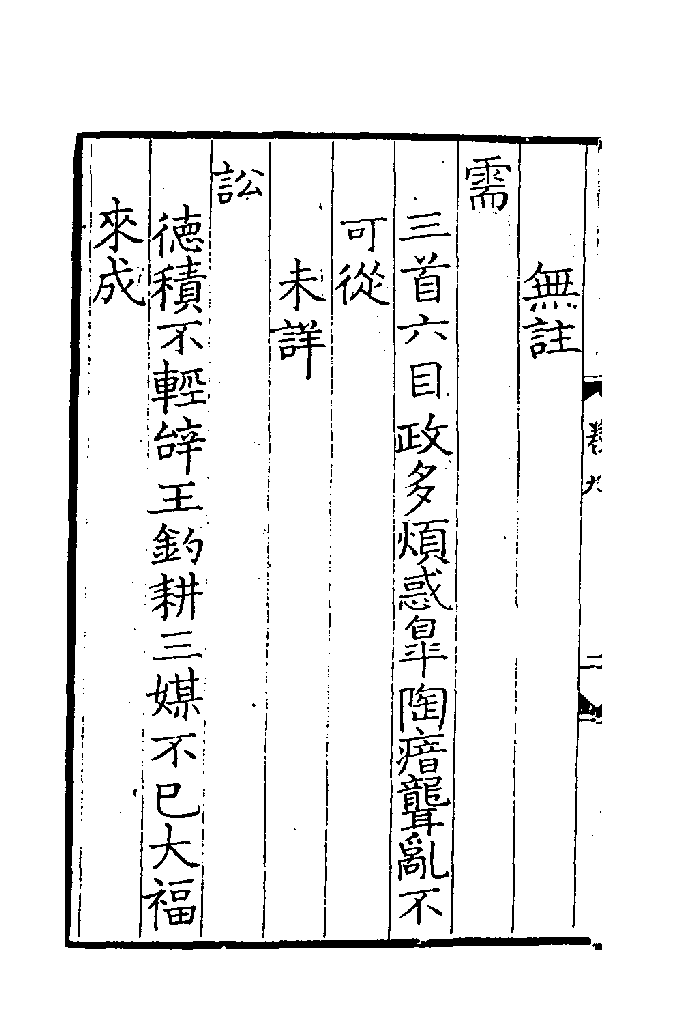 無註
需
三首六目政多煩惑臯陶瘖聾亂不
可從
未詳
訟
德積不輕辭王釣耕三媒不已大福
來成